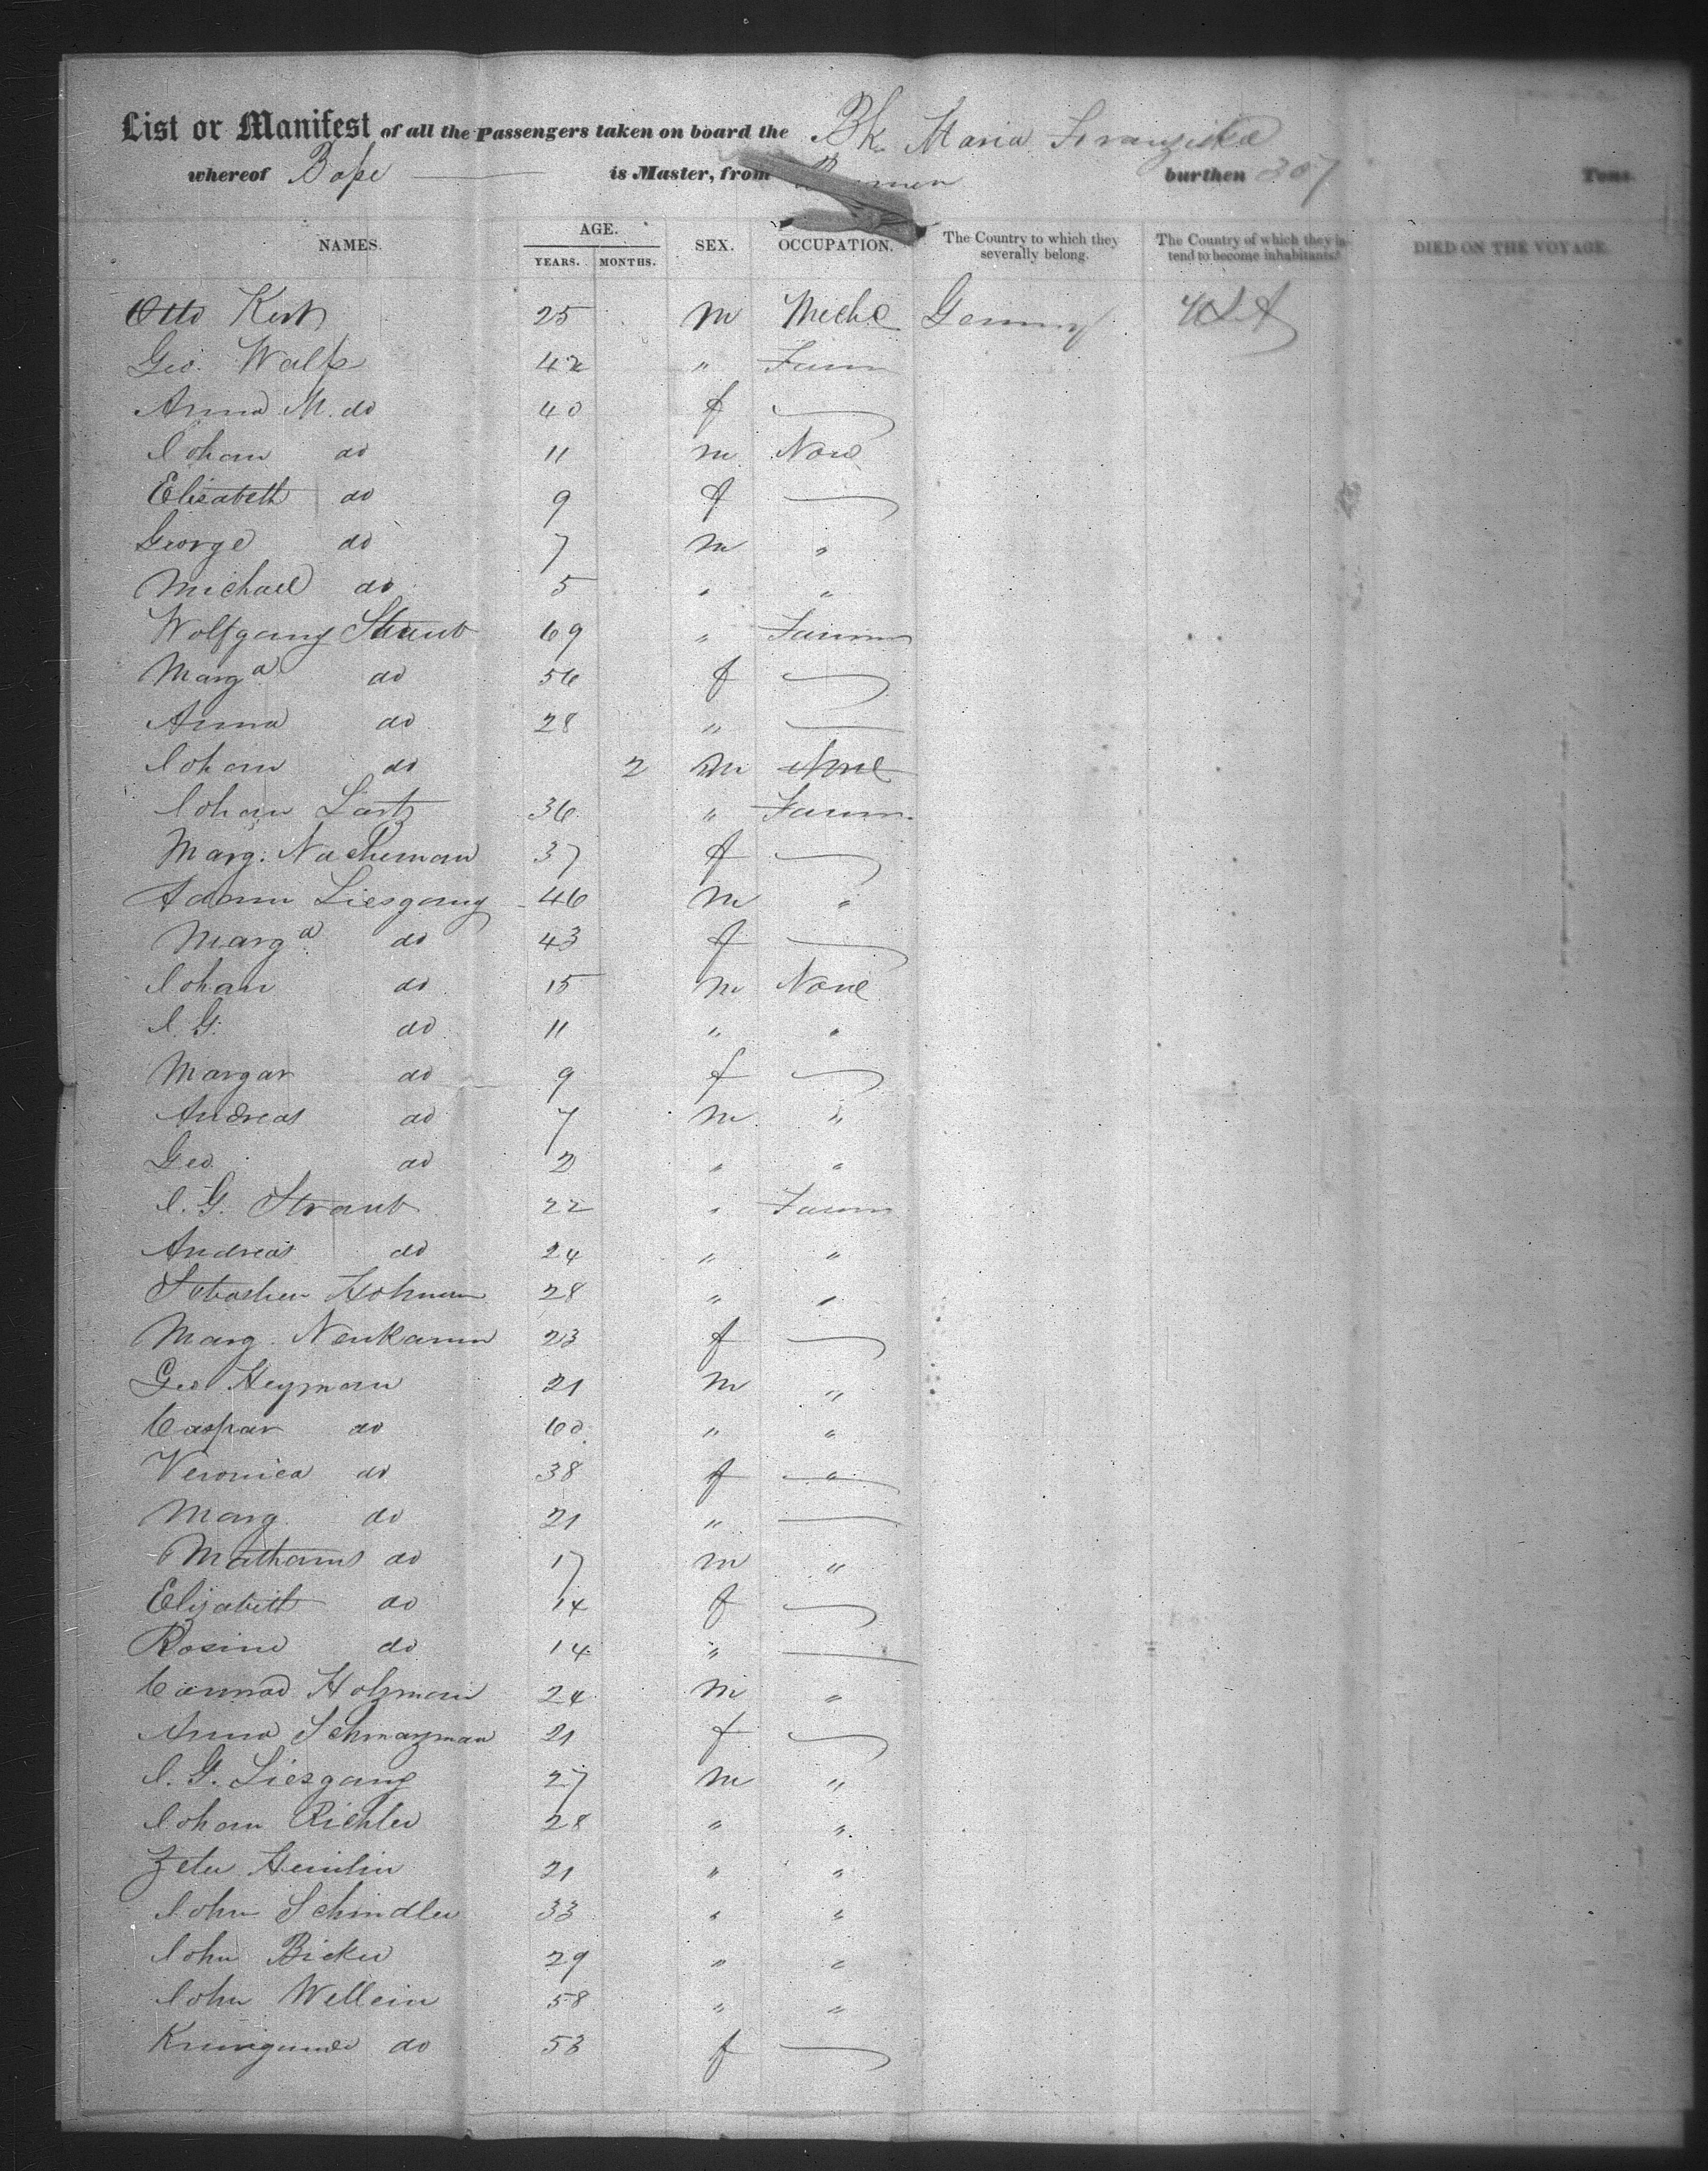 List or Manifest of all the Passengers taken on board the Bk Maria Franziska
whereof Bosse is Master, from Bremen burthen 307 Tons
NAMES. AGE. SEX. OCCUPATION. The Country to which they severally belong. The Country of which they intend to become inhabitants. DIED ON THE VOYAGE
YEARS. MONTHS.
Otto 25 m Mech Germany USA
Geo. 42 " Farm
Anna M. do 40 f
Johan do 11 m None
Elisabeth do 9 f
George do 7 m "
Michael do 5 " "
Wolfgang Straub 69 " Farmer
Marga do 56 f
Anna do 28 "
Johan do 2 m None
Johan 36 " Farm
Marg. 37 f
Adam Liesgang 46 m "
Marga do 43 f
Johan do 15 m None
J. G. do 11 " "
Margar do 9 f
Andreas do 7 m "
Geo. do 2 " "
J. G. Straub 22 " Farm
Andreas do 24 " "
Sebastian Hohman 28 " "
Marg. Neukamm 23 f
Geo Heyman 21 m "
Caspar do 60 " "
Veronica do 38 f "
Marg. do 21 "
do 17 m "
Elizabeth do 14 f
Rosine do 14 "
Conrad Holzman 24 m "
Anna 21 f
J. G. Liesgang 27 m "
Johan Richter 28 " "
21 " "
John Schindler 33 " "
John Bicker 29 " "
John Wellein 58 " "
Kunigunde do 53 f